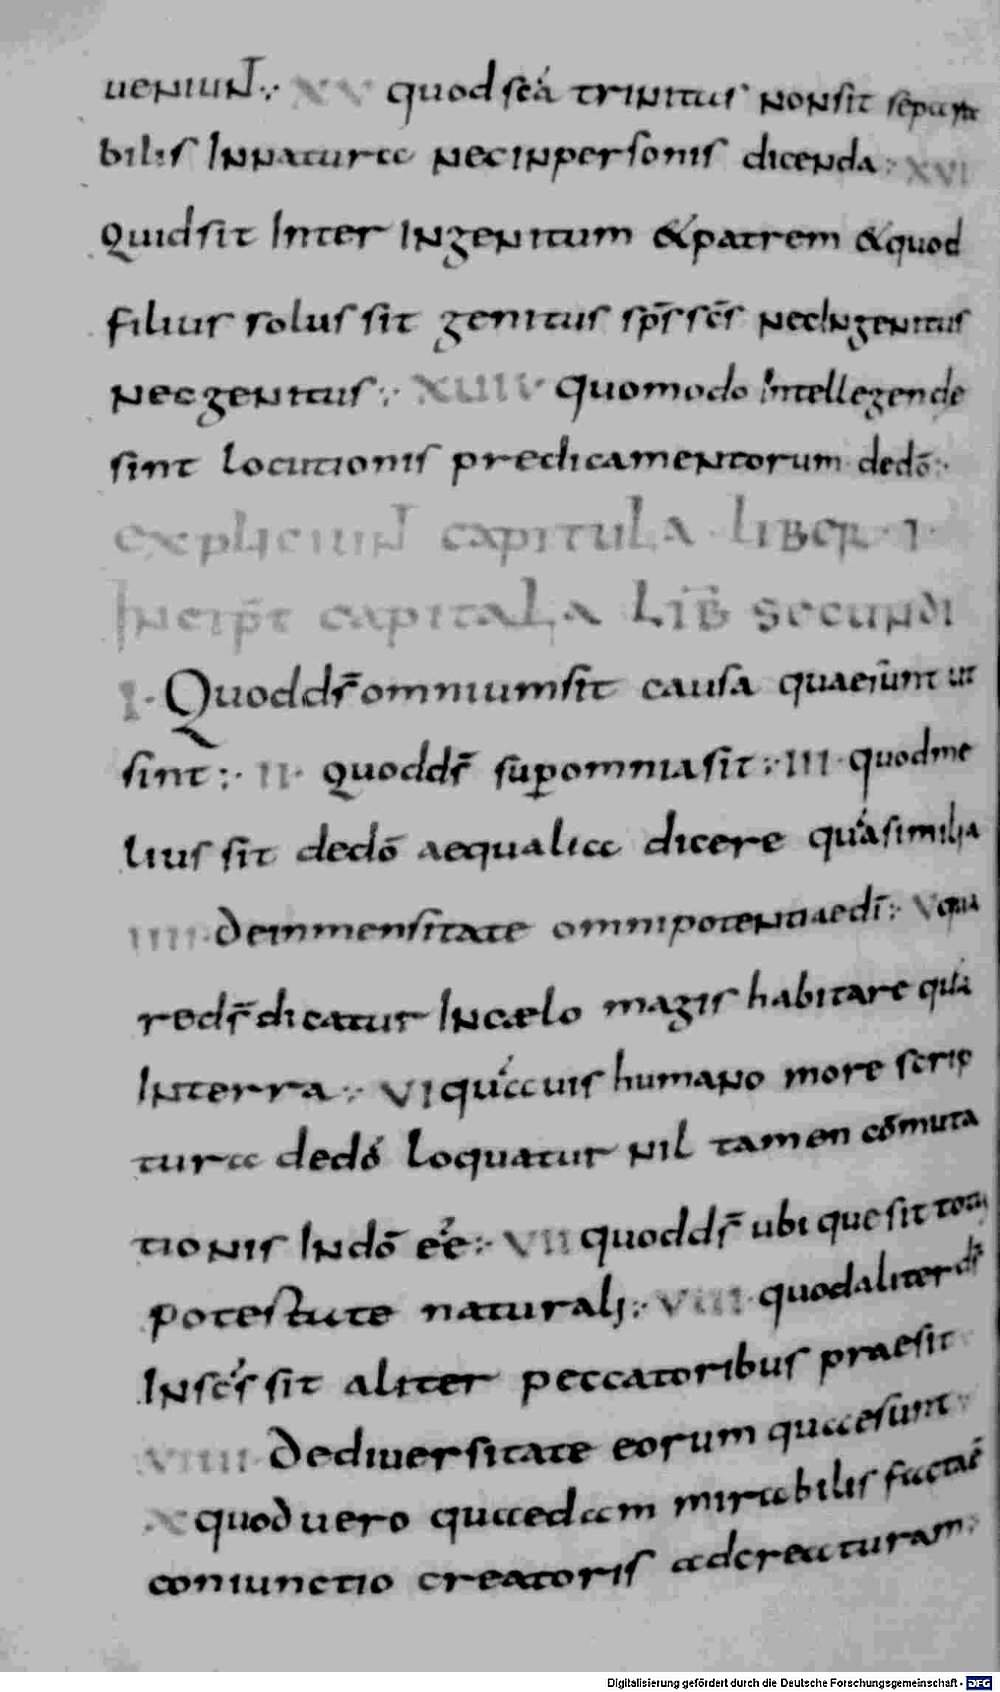 ueniunt ∴ XV quod sc̄a trinitas non sit separa
bilis In natura nec in personis dicenda ∴ XVI
Quid sit Inter Ingenitum & patrem & quod
filius solus sit genitus sp̄s sc̄s nec Ingenitus
nec genitus ∴ XUIIi quomodo Intellegende
sint locutionis predicamentorum de dō ∴
expliciunt capitula · liber · I ·
Incip̄t capitala Lib̄ secundi
I · Quod d̄s omnium sit causa quae s̄unt ut
sint ∴ II · quod d̄s sup omnia sit ∴ III · quod me
lius sit de dō aequalia dicere quā similia
IIII · De inmensitate omnipotentiae dī ∴ V qua
re d̄s dicatur In cælo magis habitare quā
In terra ∴ VI quāuis humano more scrip
tura de dō loquatur nil tamen cōmuta
tionis In dō eē ∴ VII quod d̄s ubique sit totus
potestate naturali ∴ VIII · quod aliter d̄s
In sc̄s sit aliter peccatoribus praesit
VIIII · De diuersitate eorum quae sunt
X quod uero quaedam mirabilis facta ē
coniunctio creatoris ad creaturam ∴
Digitalisierung gefördert durch die Deutsche Forschungsgemeinschaft - DFG